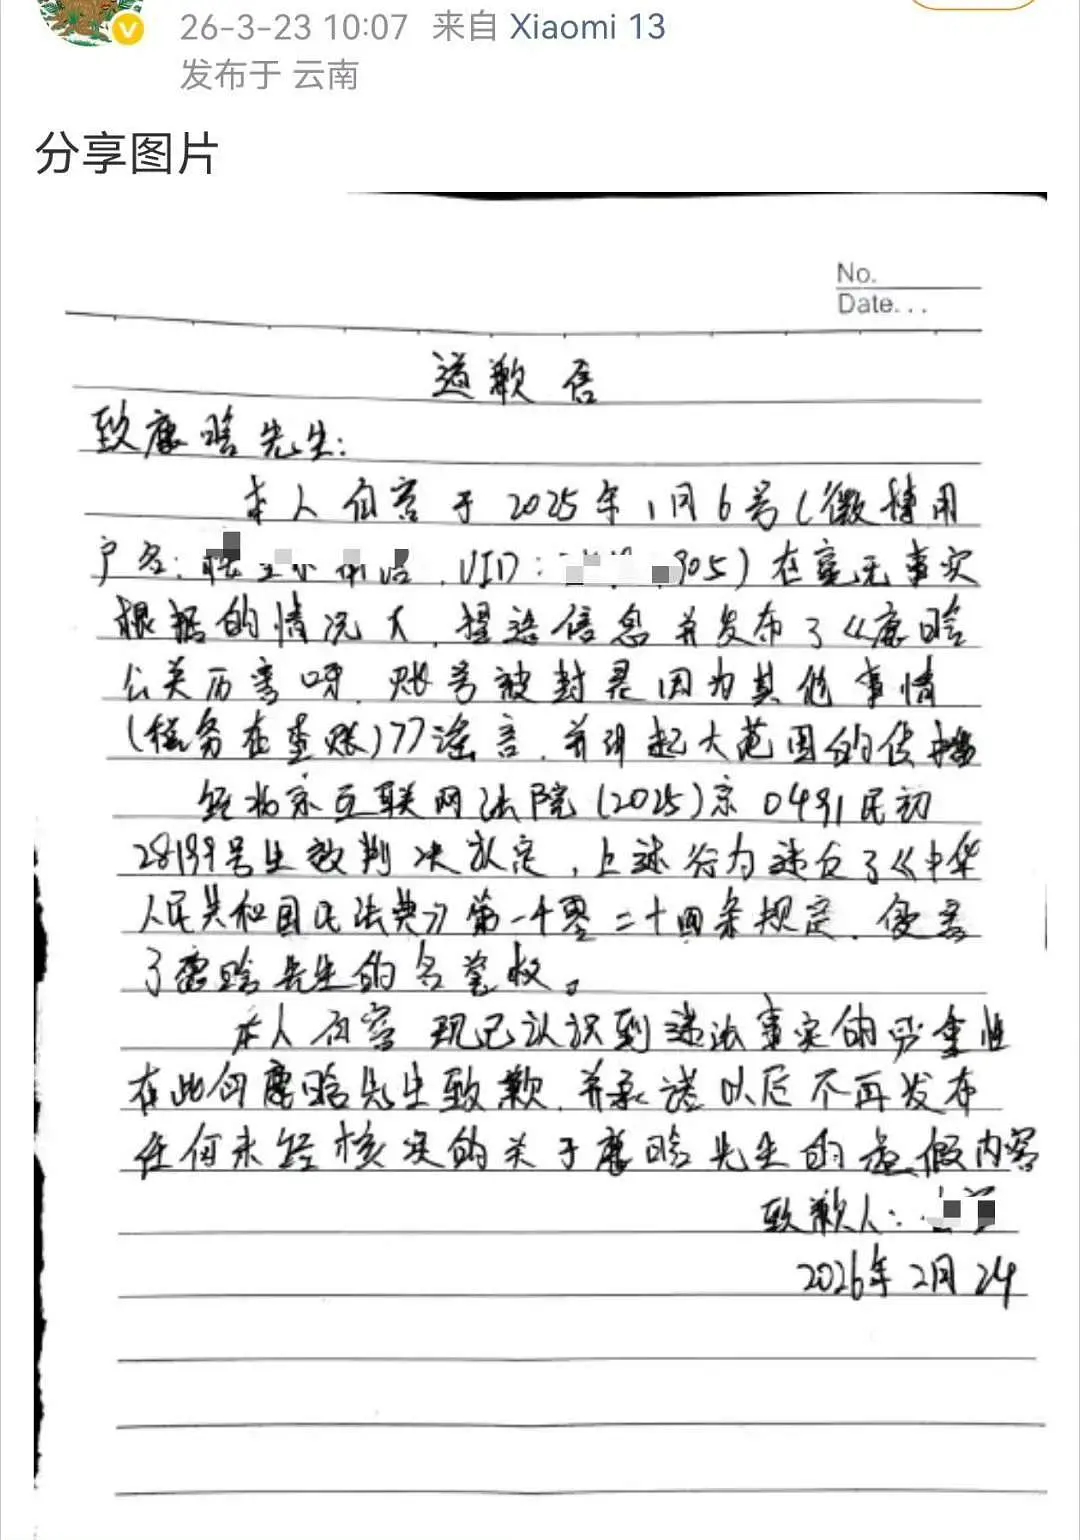 26-3-23 10:07 来自 Xiaomi 13
发布于 云南
分享图片
No.
Date...
道歉信
致康晗先生:
本人何容于2025年1月6号(微博用
户名: , UID: 305)在毫无事实
根据的情况下,捏造信息并发布了《康晗
公关历害呀,账号被封是因为其他事情
(税务在查账)??谣言,并引起大范围的传播
经北京互联网法院(2025)京0491民初
28199号生效判决认定,上述行为违反了《中华
人民共和国民法典》第一千零二十四条规定,侵害
了康晗先生的名誉权。
本人 现已认识到违法事实的严重性
在此向康晗先生致歉,并承诺以后不再发布
任何未经核实的关于康晗先生的虚假内容
致歉人:
2026年2月24